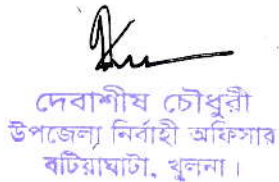 দেবাশীষ চৌধুরী
উপজেলা নির্বাহী অফিসার
বটিয়াঘাটা, খুলনা।